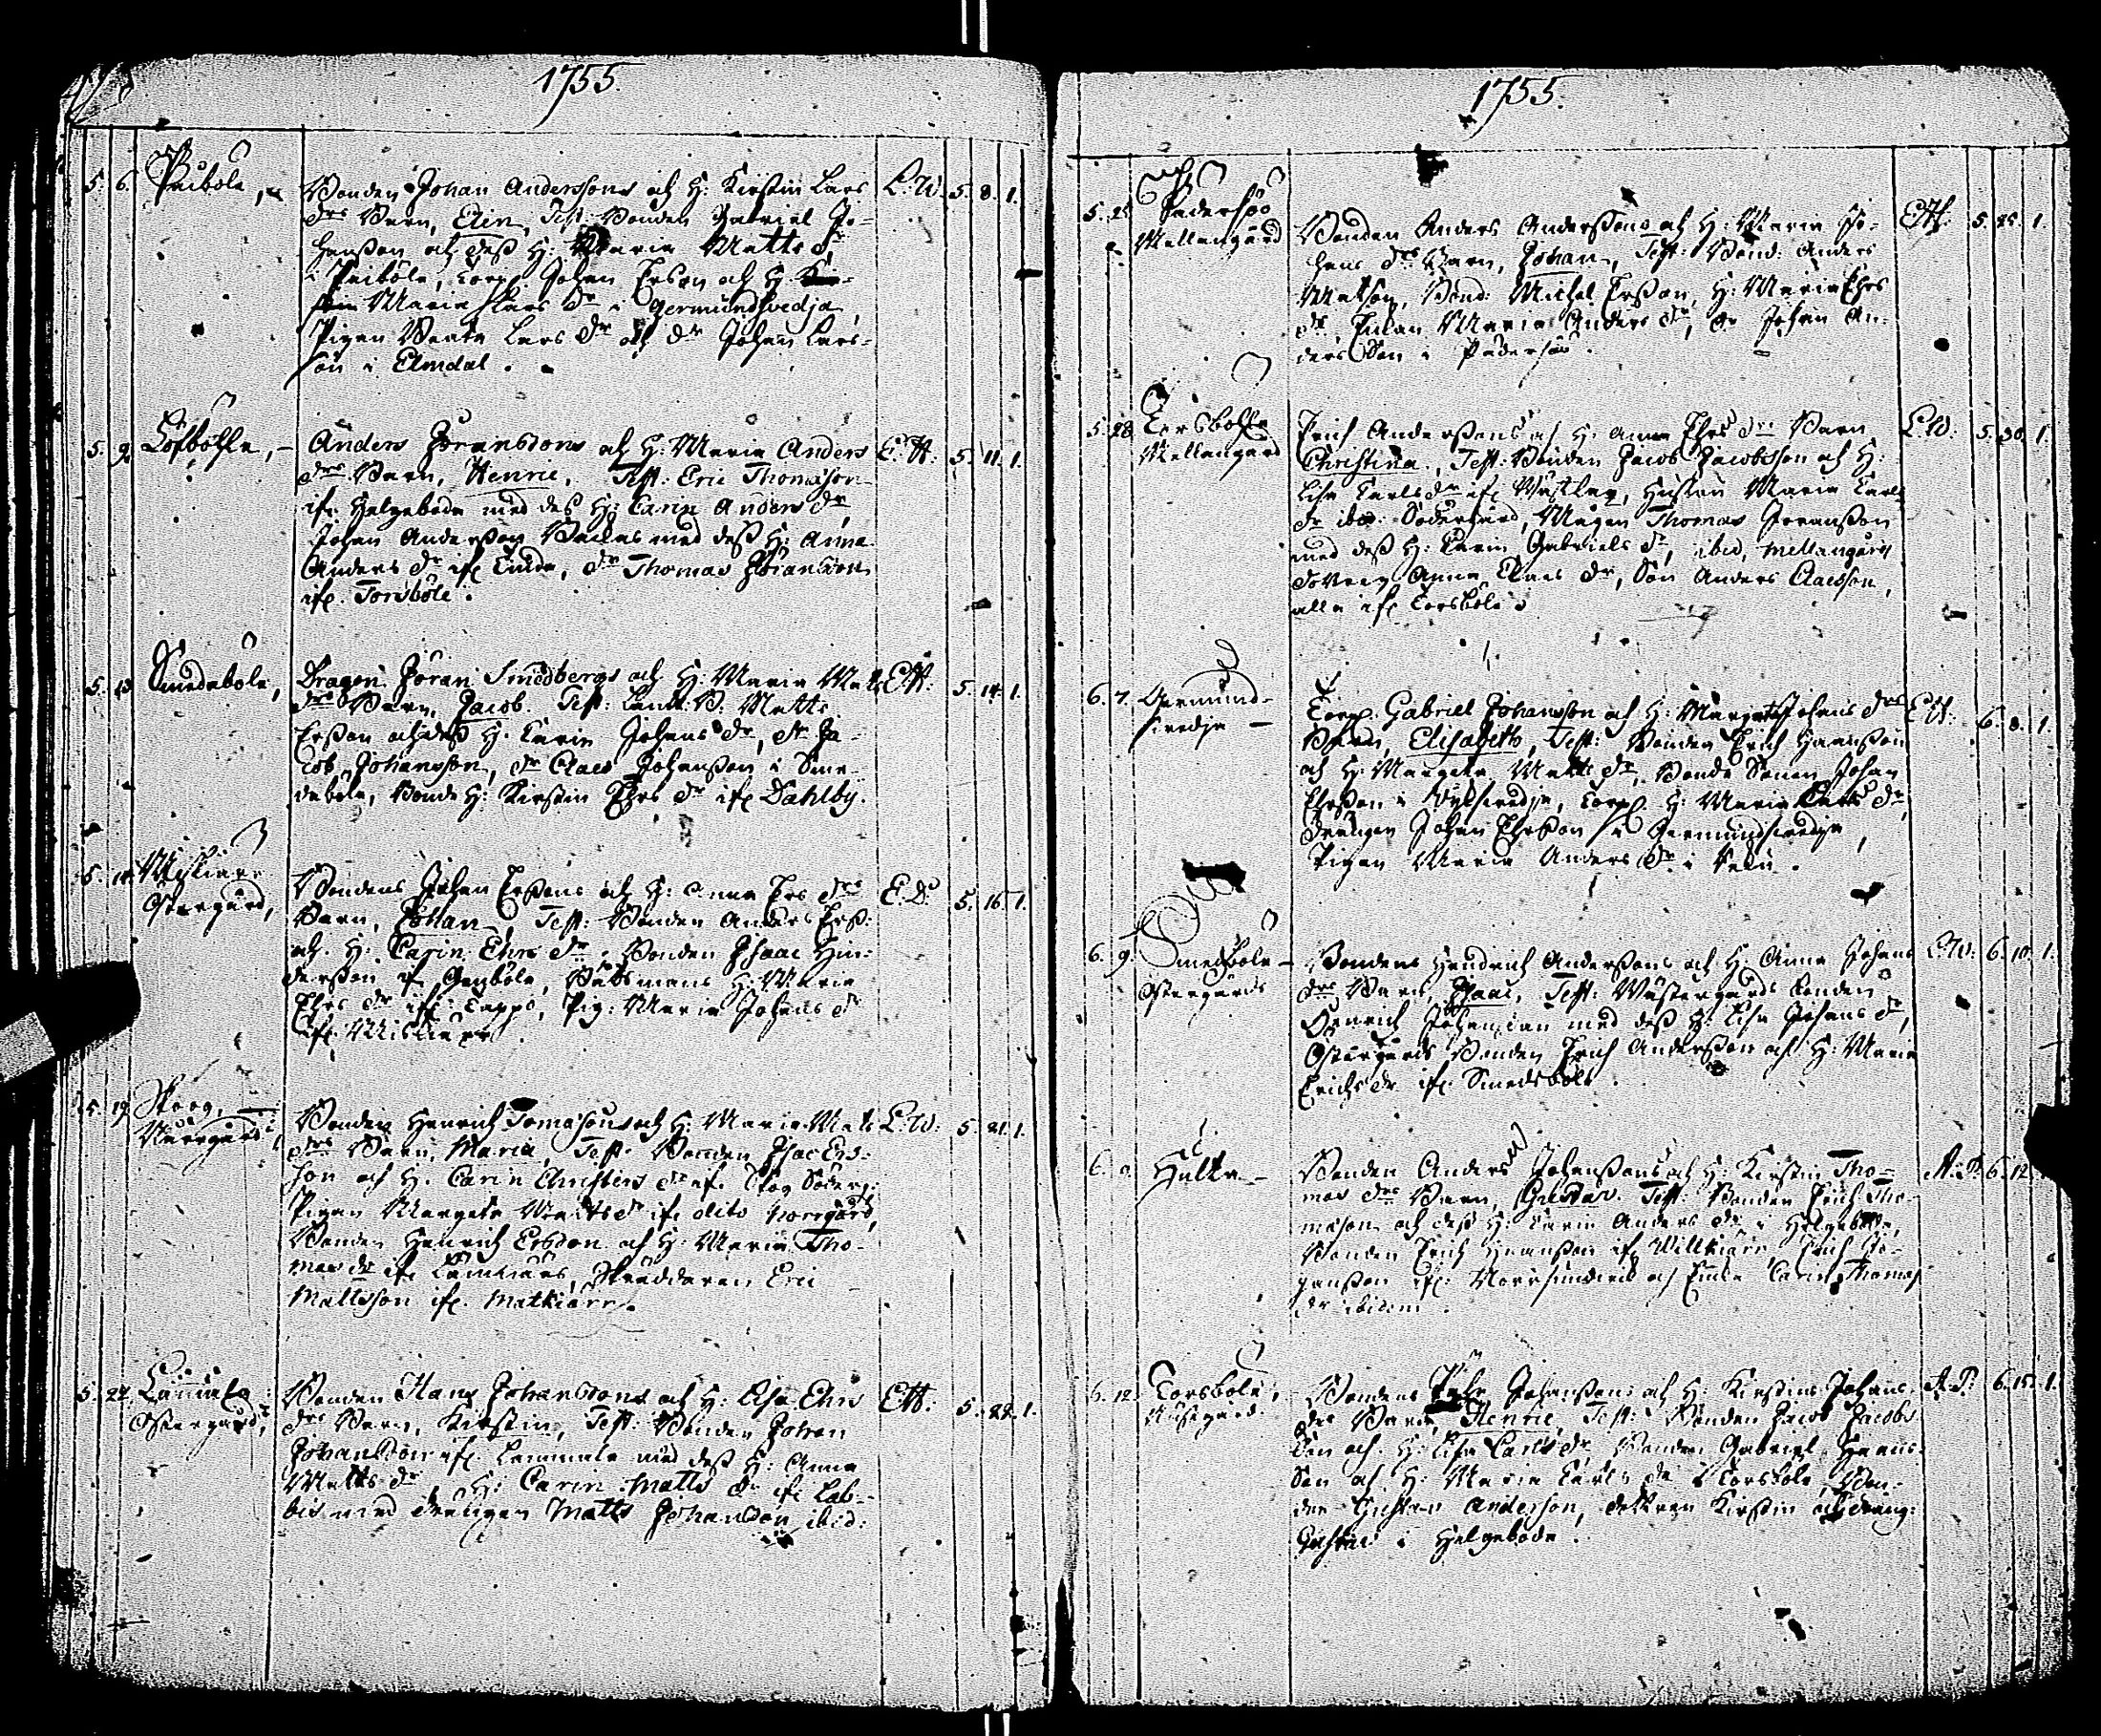 1755.
5. 6. Paibole,
Bonden Johan Anderssons och H: Kirstin Lars L: W. 5. 8. 1.
drs Barn, Elin, Test: Bonden Gabriel Jo-
hansson och dess H: Maria Matts dr
i Paibole, Corp. Johan Ersson och H.
Maria Lars dr i Germundsvedja,
Pigan Beata Lars dr och dr Johan Lars-
son i Elmdal.
5. 9. Löfböhle,
Anders Jöranssons och H: Maria Anders E: H: 5. 11. 1.
drs Barn, Henric, Test: Eric Thomasson
ifr. Helgeboda med des H: Carin Anders dr,
Johan Andersson Backas med dess H: Anna
Anders dr ifr. dr Thomas Jöransson
ifr. Torsböle.
5. 13. Smedabole,
Dragon Jöran Smedbergs och H: Maria Mats E: H: 5. 14. 1.
drs Barn, Jacob. Test: Matts
Ersson och dess H: Karin Johans dr, dr Ja-
cob Johansson, dr Claes Johansson i Sme-
daböle, Bonde H: Kirstin Ehrs dr ifr. Dahlby.
5. 14. Miskiarr
Östergård,
Bondens Johan Erssons och H: Anna Ers drs E. D: 5. 16. 1.
Barn, Johan, Test: Bonden Anders Erss:
och H: Carin Ehrs dr. Bonden Isaac Hin-
dersson af Genböle, Båtsmans H: Maria
Ehrs dr ifr. Tappo, Pig: Maria Johans dr
ifr. Miskiarr.
5. 19. Skoog,
Norrgård,
Bonden Henrich Tomassons och H: Maria Mats L: W: 5. 21. 1.
drs Barn, Maria, Test: Bonden Isac Ers-
son och H: Carin Christers dr ifr. Skog Söderg:
Pigan Margeta Matts dr ifr. dito Norrgård,
Bonden Henrich Ersson och H: Maria Tho-
mas dr ifr. Skräddaren Eric
Mattsson ifr. Matkiarr.
5. 22. Lammala
Östergård,
Bonden Hans Johanssons och H: Lisa Ehrs E: H: 5. 22. 1.
drs Barn, Kirstin, Test: Bonden Johan
Johansson ifr. Lammala med dess H: Anna
Matts dr H: Carin Matts dr ifr. Lab-
böle med drängen Matts Johansson ibid:
1755.
5. 25. Pedersspö
Mellangård
Bonden Anders Anderssons och H: Maria Jo- E: H: 5. 25. 1.
hans drs Barn, Johan, Test: Bond: Anders
Matson, Bond: Michel Ersson, H: Maria Ehrs
dr, Enkan Maria Anders dr, dr Johan An-
ders Son i Pederspö.
5. 28. Torsbolte
Mellangård
Erich Anderssons och H: Anna Ehrs drs Barn L: W: 5. 30. 1.
Christina, Test: Bonden Jacob Jacobsson och H:
Lisa Carls dr ifr. Wästlax, Hustru Maria Carls
dr ibid: Södergård, Mågen Thomas Joransson
med dess H: Karin Gabriels dr, ibid, Mellangård
Anna Claes dr, Son Anders Claesson,
alla ifr. Torsbole.
6. 7. Germund-
svedja
Corp: Gabriel Johansson och H: Margeta Johans drs E: H: 6. 8. 1.
Barn, Elisabeth, Test: Bonden Erich Hansson
och H: Margeta Matts dr, Bonde Sonen Johan
Ehrsson i Nysvedja, Corp: H: Maria Lars dr
Drängen Johan Ehrsson i Germundsvedja,
Pigan Maria Anders dr i
6. 9. Smedbole
Östergårds
Bondens Hendrich Anderssons och H: Anna Johans L: W: 6. 10. 1.
drs Barn Isaac, Test: Wästergårds bonden
Henrich Johansson med dess H: Lisa Johans dr,
Östergårds Bonden Erich Andersson och H: Maria
Erichs dr ifr. Smedsböle.
6. Hulta
Bonden Anders Johanssons och H: Kirstin Tho- A: P. 6. 12
mas drs Barn, Gustav. Test: Bonden Erich Tho-
masson och dess H: Karin Anders dr i Helgeboda,
Bonden Erich Hansson ifr. Willkiärr, Erich Jo-
hansson ifr. Norrsundvik och Enka Carin Thomas
dr ibidem.
6. 12. Torsbole,
Nusgård.
Bondens Johanssons och H: Kirstins Johans A: P. 6. 15. 1.
drs Barn, Henric, Test: Bonden Jacob Jacobs-
son och H: Lisa Carls dr, Bonden Gabriel Hans-
son och H: Maria Carls dr i Torsbole, Bon-
den Christian Anderson, dottren Kirstin och dräng:
Gustav i Helgeboda.